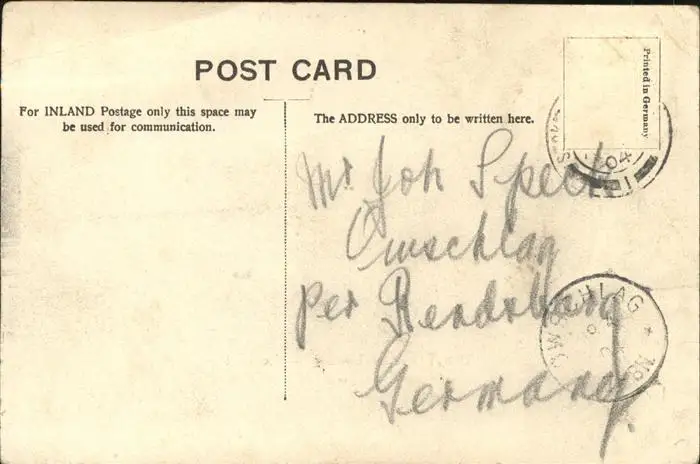 POST CARD
Printed in Germany
For INLAND Postage only this space may
be used for communication.
The ADDRESS only to be written here.
04
Mr Joh Speck
Owschlag
per Rendsburg
Germany
OWSCHLAG *